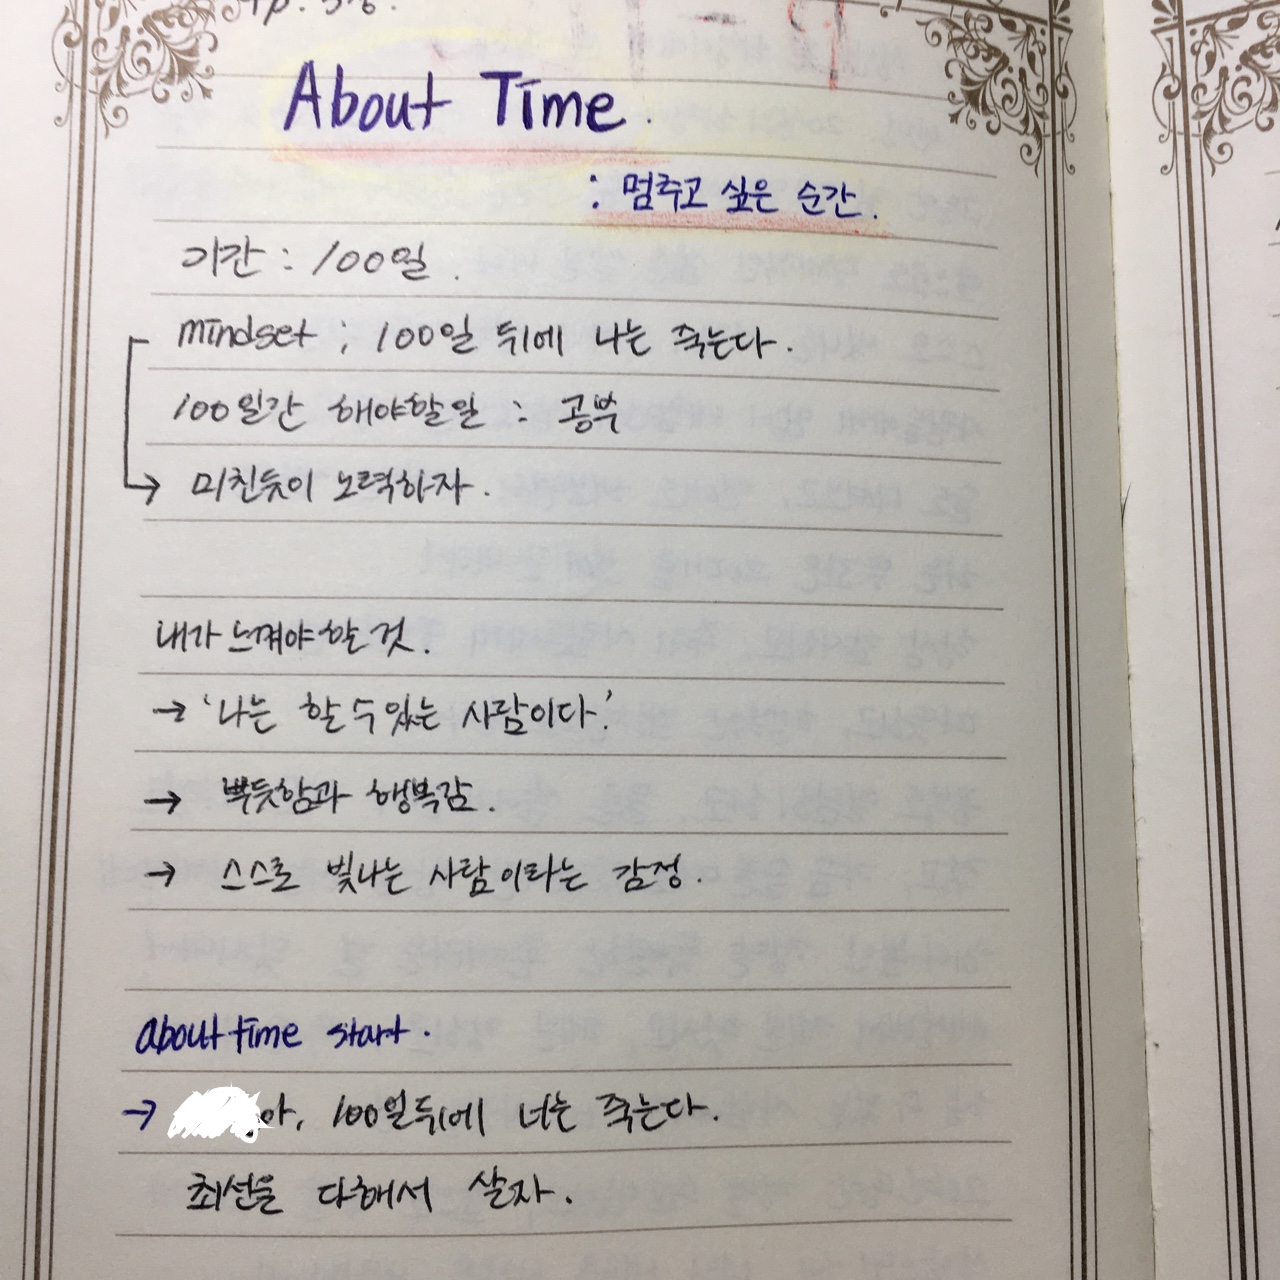 About Time
: 멈추고 싶은 순간.
기간 : 100일.
mindset ; 100일 뒤에 나는 죽는다.
100일간 해야할일 : 공부
→ 미친듯이 노력하자.
내가 느껴야 할 것.
→ '나는 할 수 있는 사람이다.'
→ 뿌듯함과 행복감.
→ 스스로 빛나는 사람이라는 감정.
about time start.
→ 아, 100일뒤에 너는 죽는다.
최선을 다해서 살자.